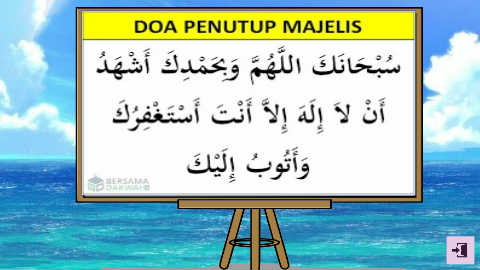 DOA PENUTUP MAJELIS
سُبْحَانَكَ اللَّهُمَّ وَبِحَمْدِكَ أَشْهَدُ
أَنْ لاَ إِلَهَ إِلاَّ أَنْتَ أَسْتَغْفِرُكَ
وَأَتُوبُ إِلَيْكَ
BERSAMA
DAKWAH